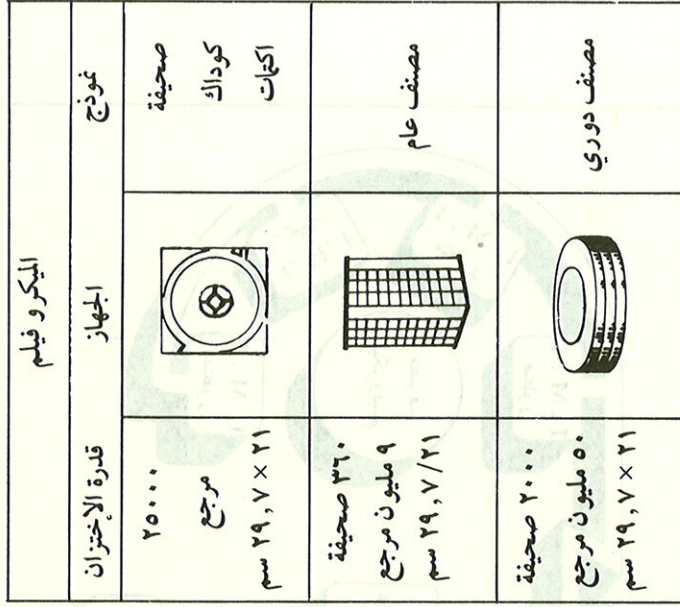 الميكروفيلم
نموذج
الجهاز
قدرة الاختزان
صحيفة
كوداك
اكتات
٢٥٠٠٠
مرجع
٢١ × ٢٩,٧ سم
مصنف عام
٣٦٠ صحيفة
٩ مليون مرجع
٢٩,٧/٢١ سم
مصنف دوري
٢٠٠٠ صحيفة
٥٠ مليون مرجع
٢١ × ٢٩,٧ سم